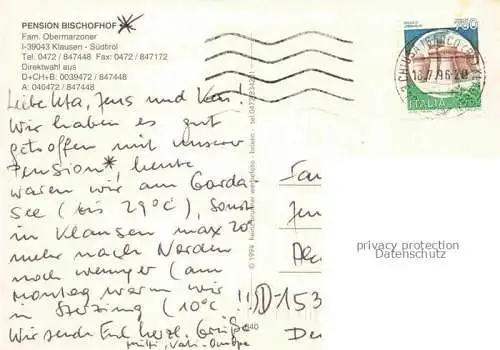 PENSION BISCHOFHOF *
Fam. Obermarzoner
I-39043 Klausen - Südtirol
Tel. 0472 / 847448 Fax: 0472 / 847172
Direktwahl aus
D+CH+B: 0039472 / 847448
A: 040472 / 847448
Liebe Uta, Jens und
Wir haben es gut
getroffen mit unserer
Pension*, heute
waren wir am Garda-
See (bis 29°C), sonst
in Klausen max 20°
mehr nach Norden
noch weniger (am
Montag waren wir
in Sterzing (10°C!!)
Wir senden Euch herzl. Grüße
© 1994
750
ITALIA
Fam
Jen
D-153
De
privacy protection
Datenschutz